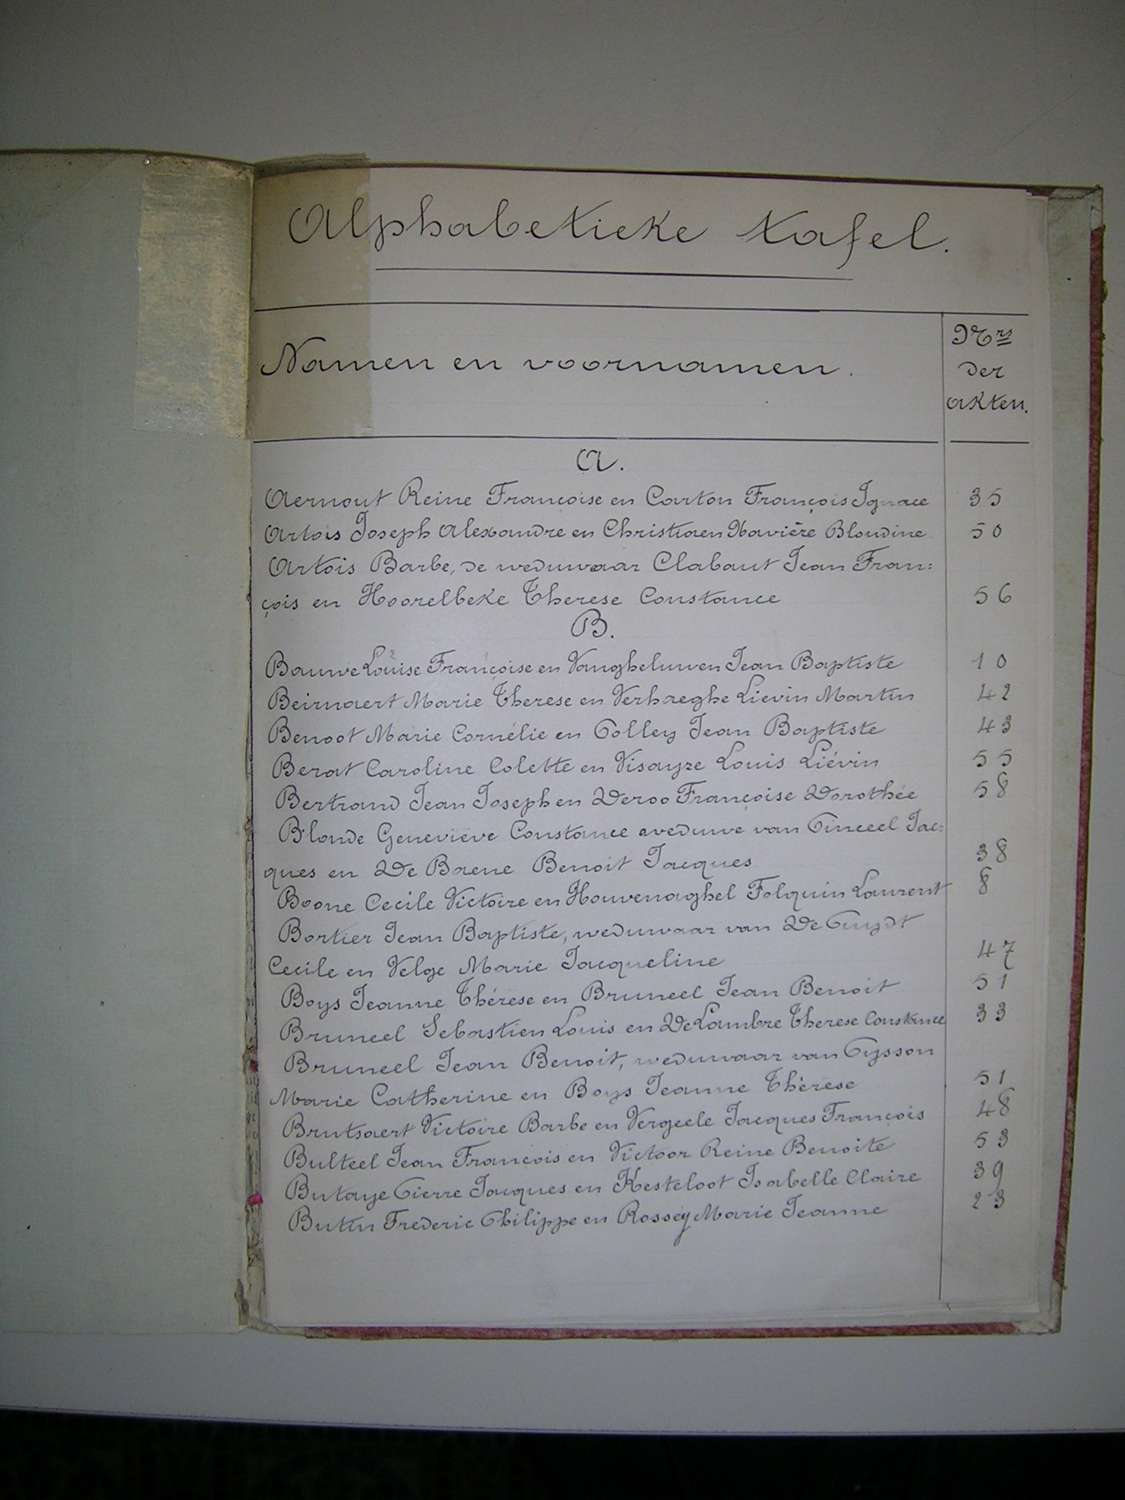 Alphabetieke tafel.
Namen en voornamen.
Nrs
der
akten.
A.
Aernout Reine Françoise en Carton François Ignace 35
Artois Joseph Alexandre en Christiaen Xavière Blondine 50
Artois Barbe, de weduwaar Clabaut Jean Fran=
çois en Hoorelbeke Therese Constance 56
B.
Bauwe Louise Françoise en Vangheluwen Jean Baptiste 10
Beirnaert Marie Therese en Verhaeghe Liévin Martin 42
Benoot Marie Cornélie en Colley Jean Baptiste 43
Berat Caroline Colette en Visayze Louis Liévin 55
Bertrand Jean Joseph en Deroo Françoise Dorothée 58
Blonde Geneviève Constance weduwe van Pinceel Jac=
ques en De Baene Benoit Jacques 38
Boone Cecile Victoire en Houvenaghel Folquin Laurent 8
Bortier Jean Baptiste, weduwaar van De Cuydt
Cecile en Velge Marie Jacqueline 47
Boys Jeanne Thérèse en Bruneel Jean Benoit 51
Bruneel Sebastien Louis en De Lambre Therese Constance 33
Bruneel Jean Benoit, weduwaar van Gysson
Marie Catherine en Boys Jeanne Thérèse 51
Brutsaert Victoire Barbe en Vergeele Jacques François 48
Bulteel Jean François en Victoor Reine Benoite 53
Butaye Pierre Jacques en Kesteloot Isabelle Claire 39
Butin Frederic Philippe en Rossey Marie Jeanne 23